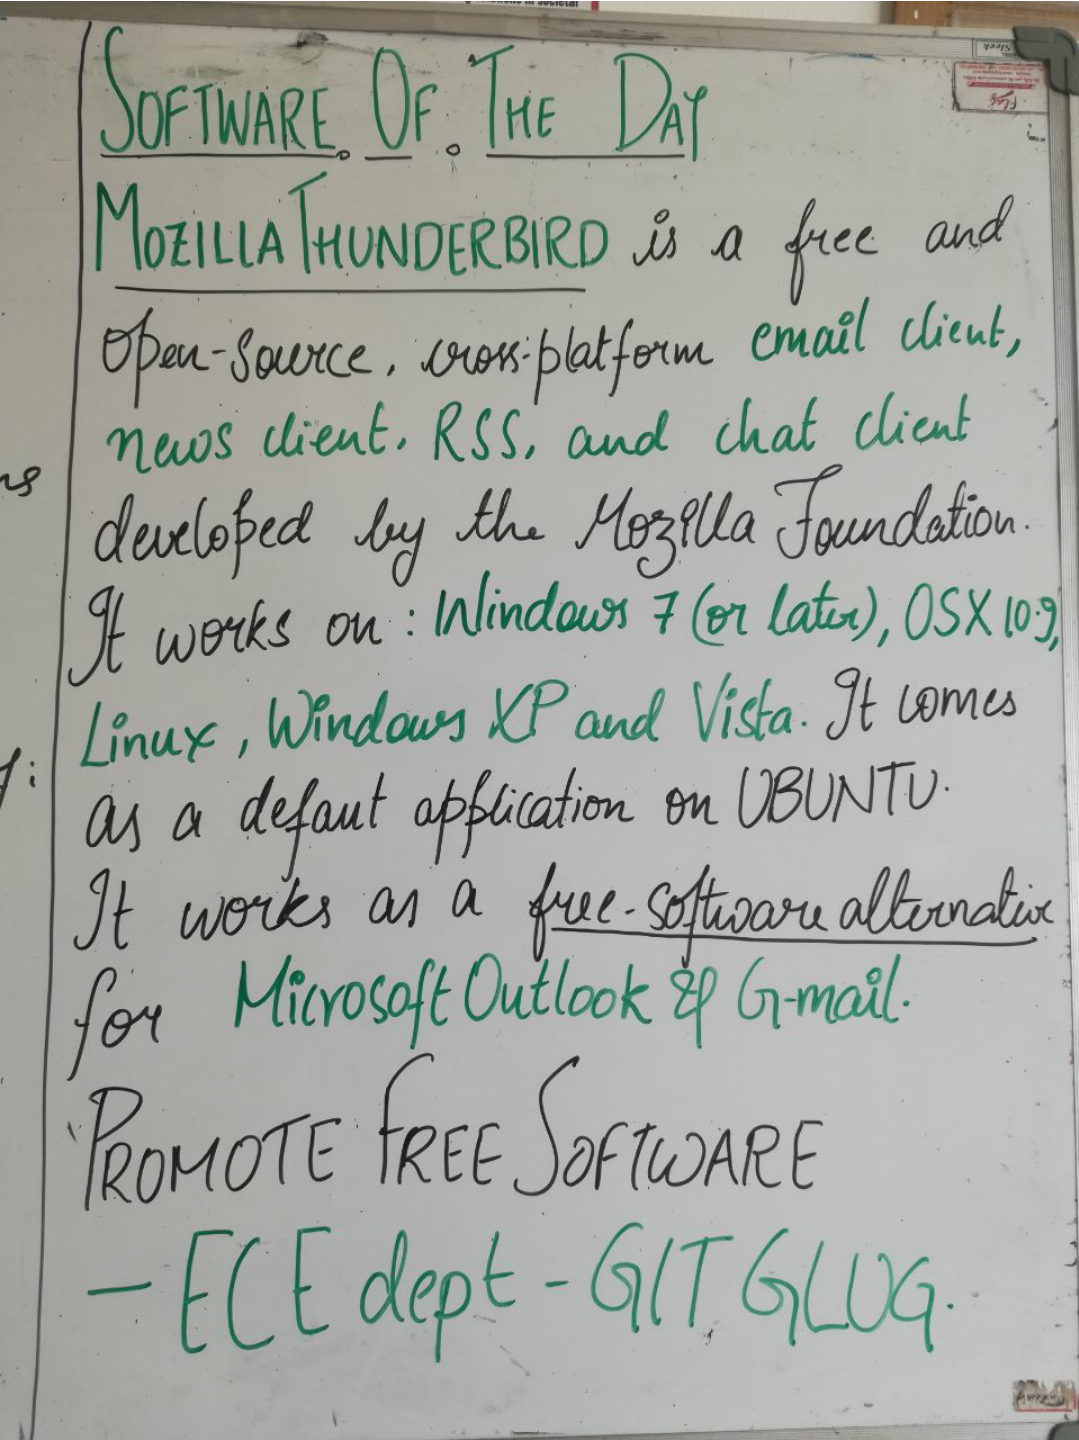 SOFTWARE OF THE DAY
MOZILLA THUNDERBIRD is a free and
open-source, cross-platform email client,
news client, RSS, and chat client
developed by the Mozilla Foundation.
It works on: Windows 7 (or later), OSX 10.9,
Linux, Windows XP and Vista. It comes
as a defaut application on UBUNTU.
It works as a free-software alternative
for Microsoft Outlook & G-mail.
PROMOTE FREE SOFTWARE
- ECE dept - GIT GLUG.